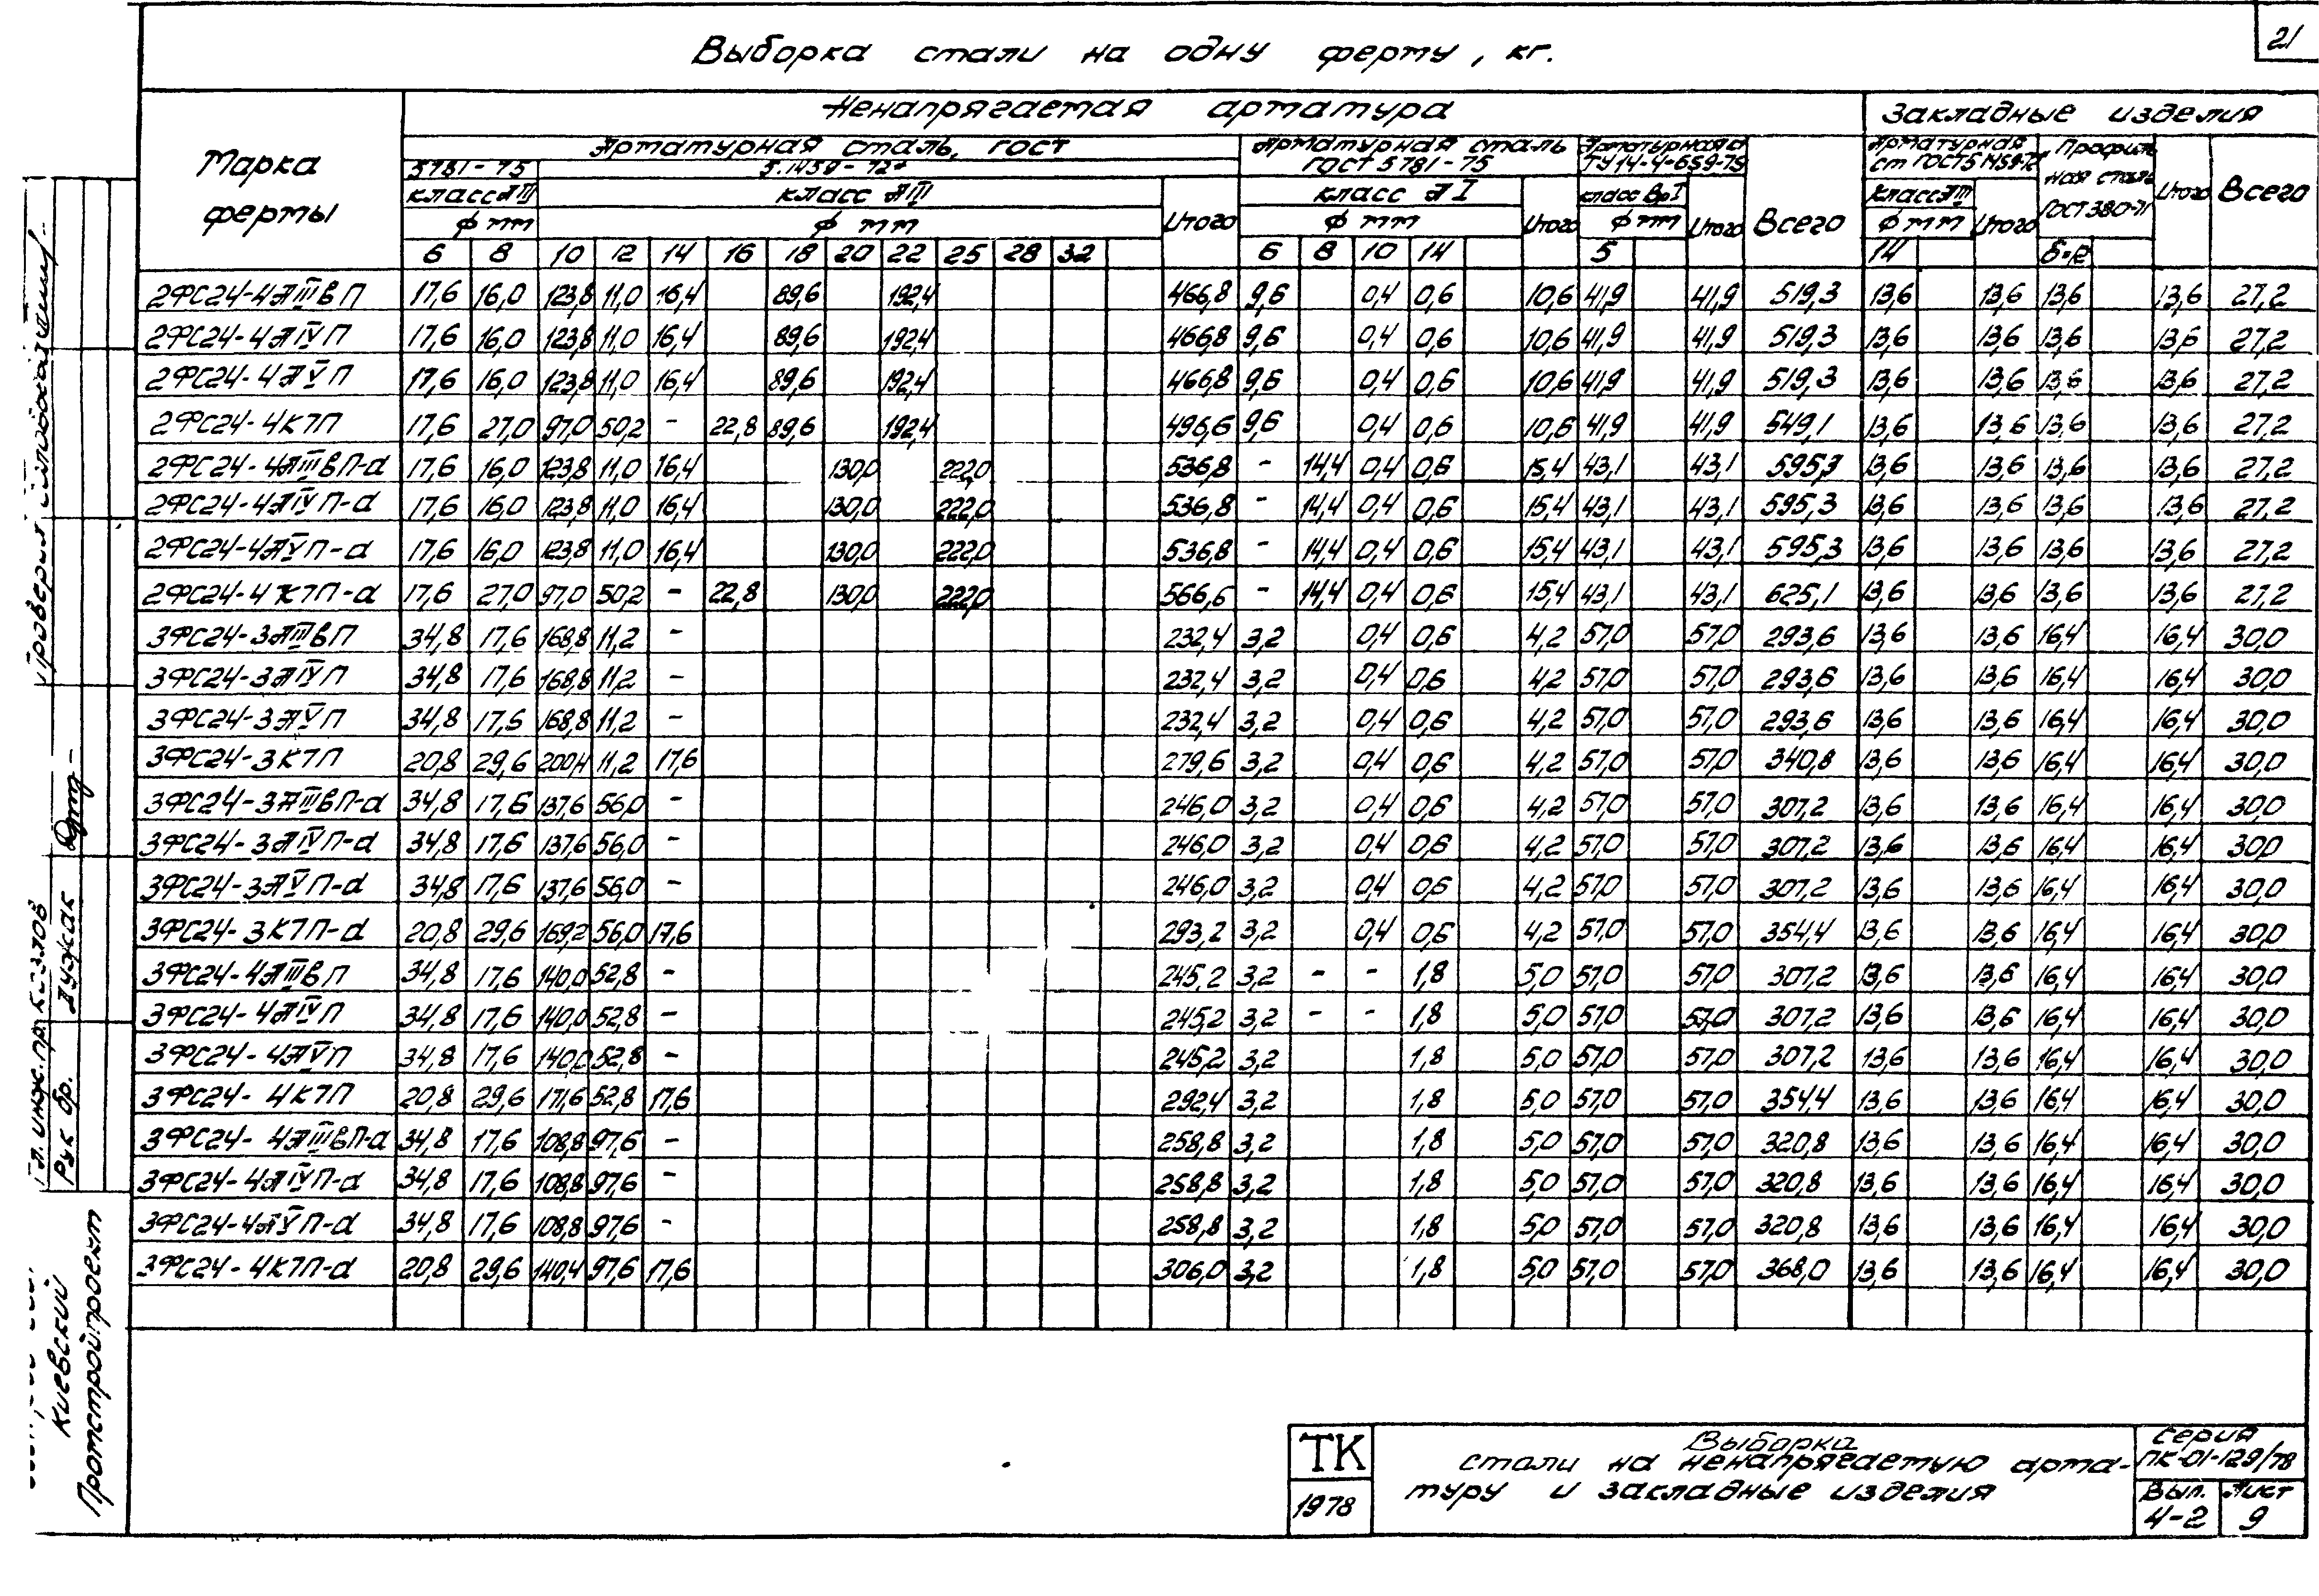 21
Выборка стали на одну ферму, кг.
Марка фермы
Ненапрягаемая арматура
Закладные изделия
Арматурная сталь, ГОСТ
5781-75
5.1459-72*
Арматурная сталь ГОСТ 5781-75
ТУ 14-4-659-75
Арматурная ст ГОСТ 5.1459-72*
Профильная сталь ГОСТ 380-71
класс АIII
класс АIII
класс АI
класс ВрI
класс АIII
Итого
Итого
Итого
Всего
Итого
Итого
Всего
ф мм
ф мм
ф мм
ф мм
ф мм
6 8 10 12 14 16 18 20 22 25 28 32 6 8 10 14 5 14
2ФС24-4АIIIвП 17,6 16,0 123,8 11,0 16,4 89,6 192,4 466,8 9,6 0,4 0,6 10,6 41,9 41,9 519,3 13,6 13,6 13,6 13,6 27,2
2ФС24-4АIVП 17,6 16,0 123,8 11,0 16,4 89,6 192,4 466,8 9,6 0,4 0,6 10,6 41,9 41,9 519,3 13,6 13,6 13,6 13,6 27,2
2ФС24-4АVП 17,6 16,0 123,8 11,0 16,4 89,6 192,4 466,8 9,6 0,4 0,6 10,6 41,9 41,9 519,3 13,6 13,6 13,6 13,6 27,2
2ФС24-4К7П 17,6 27,0 97,0 50,2 - 22,8 89,6 192,4 496,6 9,6 0,4 0,6 10,6 41,9 41,9 549,1 13,6 13,6 13,6 13,6 27,2
2ФС24-4АIIIвП-а 17,6 16,0 123,8 11,0 16,4 130,0 222,0 536,8 - 14,4 0,4 0,6 15,4 43,1 43,1 595,3 13,6 13,6 13,6 13,6 27,2
2ФС24-4АIVП-а 17,6 16,0 123,8 11,0 16,4 130,0 222,0 536,8 - 14,4 0,4 0,6 15,4 43,1 43,1 595,3 13,6 13,6 13,6 13,6 27,2
2ФС24-4АVП-а 17,6 16,0 123,8 11,0 16,4 130,0 222,0 536,8 - 14,4 0,4 0,6 15,4 43,1 43,1 595,3 13,6 13,6 13,6 13,6 27,2
2ФС24-4К7П-а 17,6 27,0 97,0 50,2 - 22,8 130,0 222,0 566,6 - 14,4 0,4 0,6 15,4 43,1 43,1 625,1 13,6 13,6 13,6 13,6 27,2
3ФС24-3АIIIвП 34,8 17,6 168,8 11,2 - 232,4 3,2 0,4 0,6 4,2 57,0 57,0 293,6 13,6 13,6 16,4 16,4 30,0
3ФС24-3АIVП 34,8 17,6 168,8 11,2 - 232,4 3,2 0,4 0,6 4,2 57,0 57,0 293,6 13,6 13,6 16,4 16,4 30,0
3ФС24-3АVП 34,8 17,6 168,8 11,2 - 232,4 3,2 0,4 0,6 4,2 57,0 57,0 293,6 13,6 13,6 16,4 16,4 30,0
3ФС24-3К7П 20,8 29,6 200,4 11,2 17,6 279,6 3,2 0,4 0,6 4,2 57,0 57,0 340,8 13,6 13,6 16,4 16,4 30,0
3ФС24-3АIIIвП-а 34,8 17,6 137,6 56,0 - 246,0 3,2 0,4 0,6 4,2 57,0 57,0 307,2 13,6 13,6 16,4 16,4 30,0
3ФС24-3АIVП-а 34,8 17,6 137,6 56,0 - 246,0 3,2 0,4 0,6 4,2 57,0 57,0 307,2 13,6 13,6 16,4 16,4 30,0
3ФС24-3АVП-а 34,8 17,6 137,6 56,0 - 246,0 3,2 0,4 0,6 4,2 57,0 57,0 307,2 13,6 13,6 16,4 16,4 30,0
3ФС24-3К7П-а 20,8 29,6 169,2 56,0 17,6 293,2 3,2 0,4 0,6 4,2 57,0 57,0 354,4 13,6 13,6 16,4 16,4 30,0
3ФС24-4АIIIвП 34,8 17,6 140,0 52,8 - 245,2 3,2 - - 1,8 5,0 57,0 57,0 307,2 13,6 13,6 16,4 16,4 30,0
3ФС24-4АIVП 34,8 17,6 140,0 52,8 - 245,2 3,2 - - 1,8 5,0 57,0 57,0 307,2 13,6 13,6 16,4 16,4 30,0
3ФС24-4АVП 34,8 17,6 140,0 52,8 - 245,2 3,2 1,8 5,0 57,0 57,0 307,2 13,6 13,6 16,4 16,4 30,0
3ФС24-4К7П 20,8 29,6 171,6 52,8 17,6 292,4 3,2 1,8 5,0 57,0 57,0 354,4 13,6 13,6 16,4 16,4 30,0
3ФС24-4АIIIвП-а 34,8 17,6 108,8 97,6 - 258,8 3,2 1,8 5,0 57,0 57,0 320,8 13,6 13,6 16,4 16,4 30,0
3ФС24-4АIVП-а 34,8 17,6 108,8 97,6 - 258,8 3,2 1,8 5,0 57,0 57,0 320,8 13,6 13,6 16,4 16,4 30,0
3ФС24-4АVП-а 34,8 17,6 108,8 97,6 - 258,8 3,2 1,8 5,0 57,0 57,0 320,8 13,6 13,6 16,4 16,4 30,0
3ФС24-4К7П-а 20,8 29,6 140,4 97,6 17,6 306,0 3,2 1,8 5,0 57,0 57,0 368,0 13,6 13,6 16,4 16,4 30,0
Проверил
Гл. инж. пр. Козлов
Рук бр. Лужак
Киевский
Промстройпроект
ТК
1978
Выборка
стали на ненапрягаемую арма-
туру и закладные изделия
Серия
ПК-01-129/78
Вып. 4-2
Лист 9